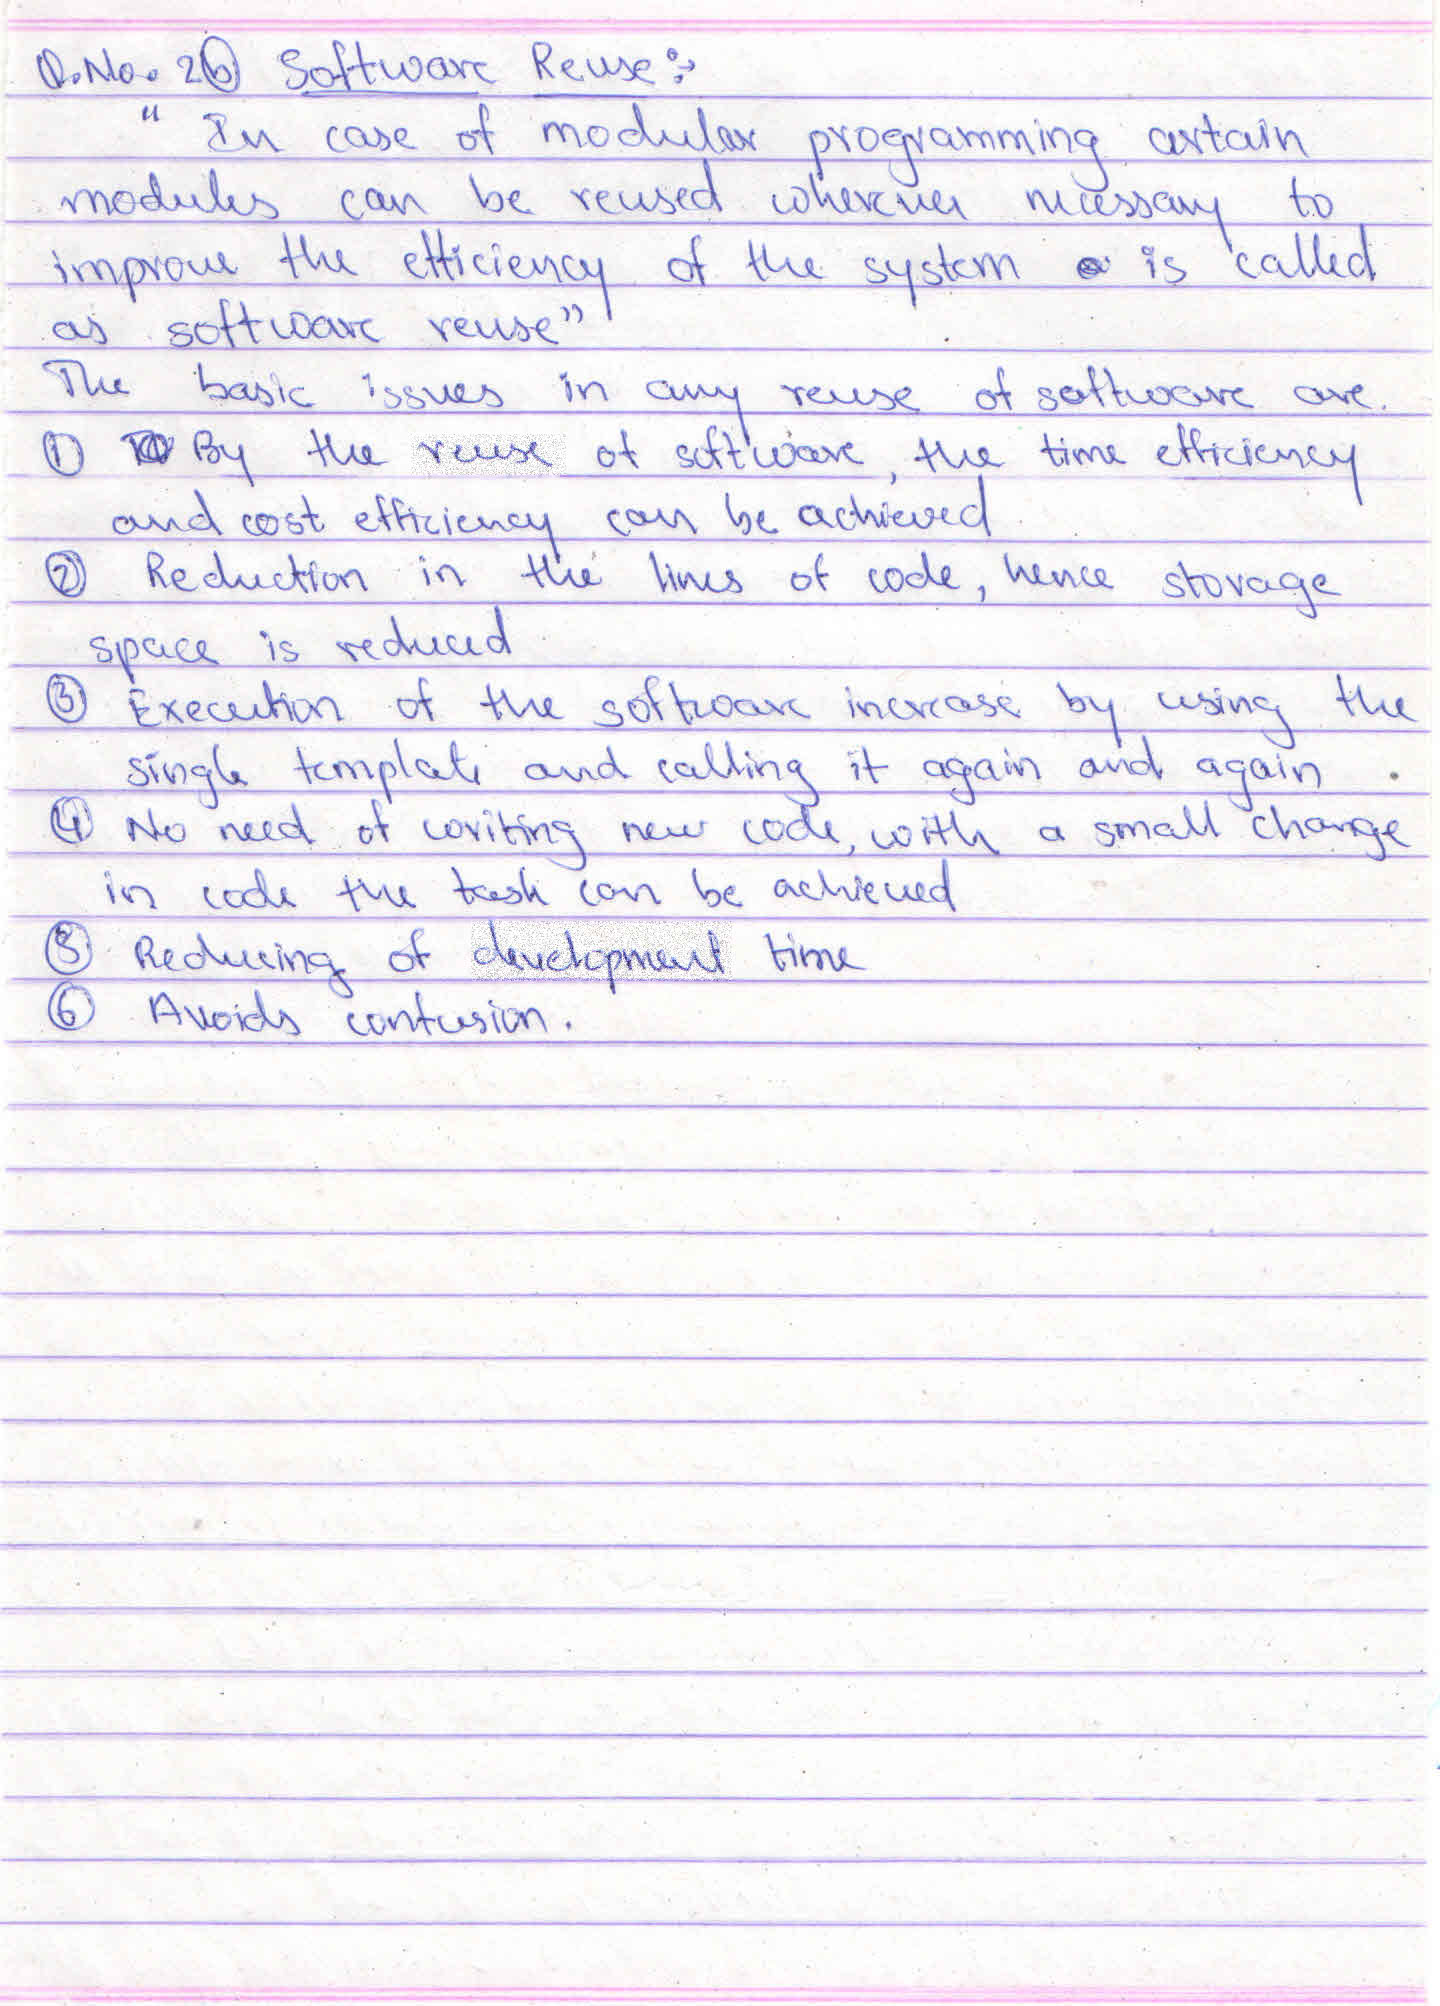 Q.No. 2(b) Software Reuse:→
" In case of modular programming certain
modules can be reused wherever necessary to
improve the efficiency of the system is called
as software reuse"
The basic issues in any reuse of software are.
① By the reuse of software, the time efficiency
and cost efficiency can be achieved
② Reduction in the lines of code, hence storage
space is reduced
③ Execution of the software increase by using the
single template and calling it again and again.
④ No need of writing new code, with a small change
in code the task can be achieved
⑤ Reducing of development time
⑥ Avoids confusion.